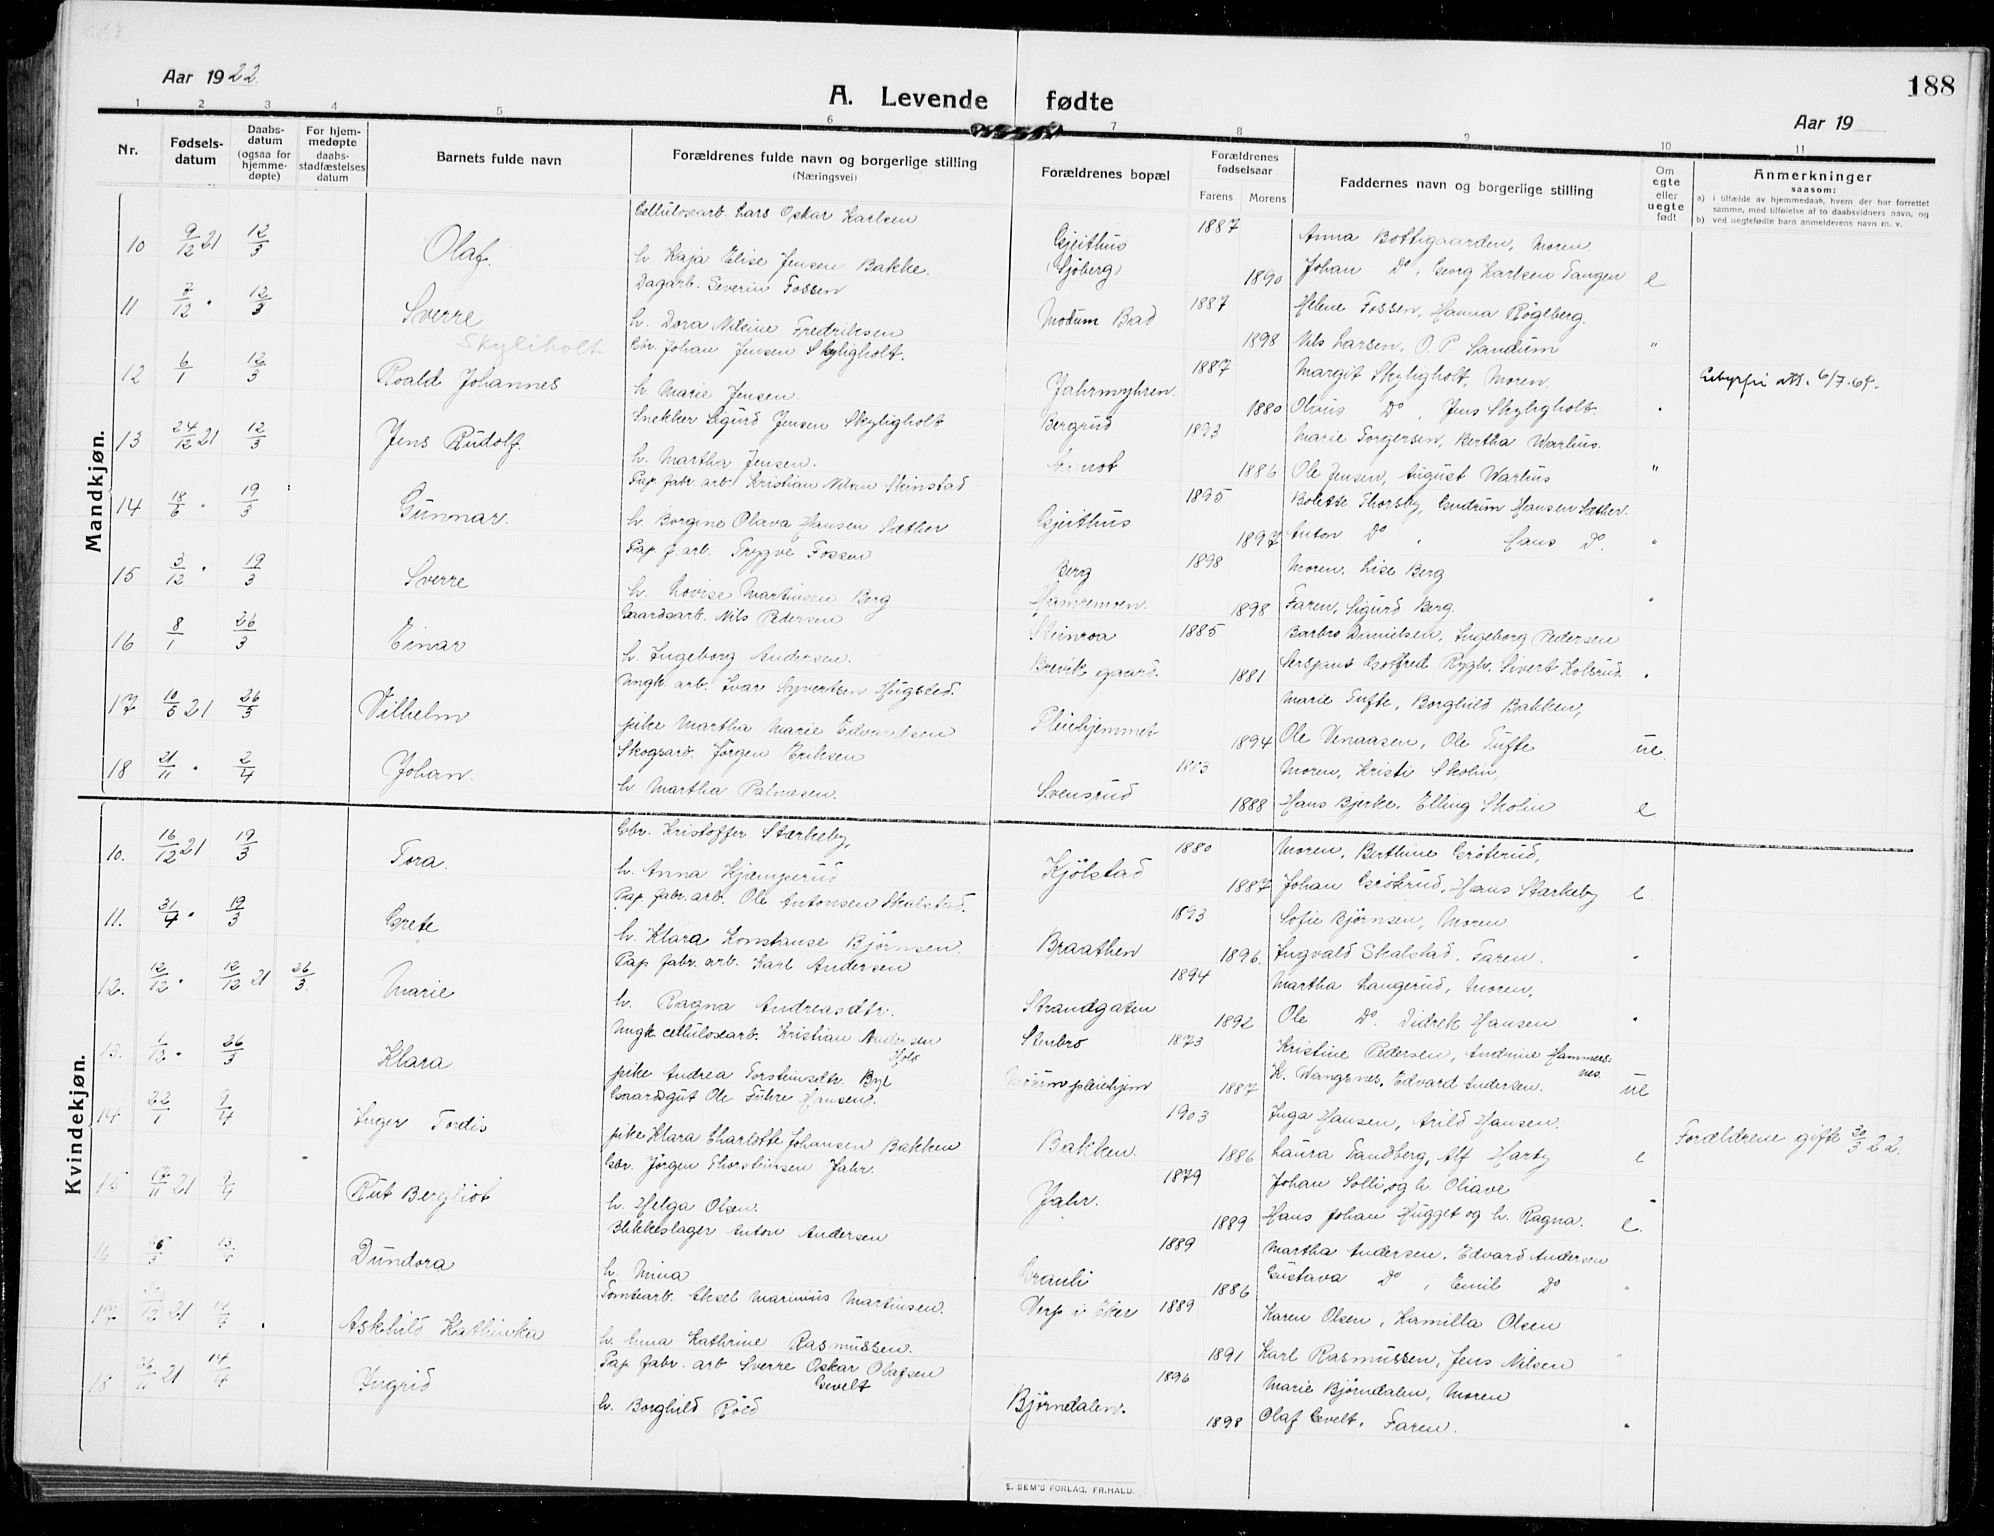 188
Aar 1922
A. Levende fødte
Aar 19
1 2 3 4 5 6 7 8 9 10 11
Nr.
Fødsels-datum
Daabs-datum (ogsaa for hjemme-døpte)
For hjem-medøpte daabs-stadfæstelses datum
Barnets fulde navn
Forældrenes fulde navn og borgerlige stilling (Næringsvei)
Forældrenes bopæl
Forældrenes fødselsaar
Farens Morens
Faddernes navn og borgerlige stilling
Om egte eller uegte født
Anmerkninger
saasom:
a) i tilfælde av hjemmedaab, hvem der har forrettet samme, med tilføielse af to daabsvidners navn, og
b) ved uegtefødte barn anmelderens navn m. v.
Mandkjøn.
10 9/12 21 12/3 Olaf. Cellulosearb. Lars Oskar Karlsen Gjeithus 1887 Anna Bottegaarden, Moren.
h. Kaja Elise Jensen Bakke. (Sjöberg) 1890 Johan Do, Georg Karlsen Tangen e
11 7/12 " 12/3 Sverre Dagarb. Severin Fossen Modum Bad 1887 Helene Fossen, Hanna Rögeberg.
h. Dora Nilsine Fredriksen 1898 Nils Larsen, O. P. Sandum "
Skyliholt
12 6/1 12/3 Roald Johannes Gbr. Johan Jensen Skyligholt. Jahrmyhren 1887 Margit Skyligholt, Moren.
h. Marie Jensen. 1880 Olaus Do, Jens Skyligholt "
13 24/12 21 12/3 Jens Rudolf. Snekker Sigurd Jensen Skyligholt Bergrud 1893 Marie Torgersen, Bertha Warhus.
h. Martha Jensen. 1886 Ole Jensen, August Warhus "
14 18/6 " 19/3 Gunnar. Pap. fabr. arb. Kristian Nilsen Skinstad Gjeithus 1895 Bolette Thorsby, Gudrun Hansen Sæther.
h. Borgine Olava Hansen Sæther 1897 Anton Do, Hans Do. "
15 3/12 " 19/3 Sverre Pap. f. arb. Trygve Fossen Berg 1898 Moren, Lise Berg
h. Lovise Martinsen Berg Hamremoen. 1898 Faren, Sigurd Berg. "
16 8/1 26/3 Einar Gaardsarb. Nils Pedersen Steinroa 1885 Barbro Danielsen, Ingeborg Pedersen
h. Ingeborg Andersen. Brevik gaard. 1881 Sersjant Gotfred Rygh, Sivert Kolsrud "
17 10/5 21 26/3 Vilhelm Ungk. arb. Ivar Syvertsen Hugsted. Pleiehjemmet Marie Tufte, Borghild Bakken,
pike Martha Marie Edvardsen 1894 Ole Venaasen, Ole Tufte ue
18 21/11 " 2/4 Johan. Skogsarb. Jørgen Eriksen Svensrud Moren, Kristi Skolin,
h. Martha Palmesen. 1888 Hans Bjerke, Elling Skolin e
Kvindekjøn.
10. 16/12 21 19/3 Tora. Gbr. Kristoffer Stærkeby, Kjölstad 1880 Moren, Berthine Grøterud,
h. Anna Kjemperud 1887 Johan Grøterud, Hans Stærkeby e.
11. 31/4 " 19/3 Grete Pap. fabr. arb. Ole Antonsen Skalstad. Braathen 1893 Sofie Bjørnsen, Moren
h. Klara Konstanse Bjørnsen 1896. Ingvald Skalstad, Faren. "
12. 12/12 " 12/12 21 26/3 Marie Pap. fabr. arb. Karl Andersen Strandgaten 1894 Martha Langerud, Moren,
h. Ragna Andreasdtr. 1892 Ole Do. Didrik Hansen "
13. 1/12 " 26/3 Klara Ungk. cellulosearb. Kristian Andersen Stenbro 1873 Kristine Pedersen, Andrine Hammers=nes.
pike Andrea Torsteinsdtr. Modum pleiehjem 1887 K. Wangsnes, Edvard Andersen. ue
14 22/1 9/4 Inger Tordis Gaardsgut Ole Führe Hansen. Bakken. 1903 Inga Hansen, Arild Hansen. Forældrene gifte 30/3 22.
pike Klara Charlotte Johansen Bakken 1886 Laura Sandberg, Alf Harby e
15 21 9/4 Rut Bergliot Gbr. Jörgen Thorsteinsen Jahr. Jahr. 1879 Johan Solli og h. Oliave
h. Helga Olsen. 1889 Hans Johan Hugget og h. Ragna. e.
16 Dundora Blikkeslager Anton Andersen Granli 1889 Martha Andersen, Edvard Andersen
h. Mina 1886 Gustava Do, Emil Do "
17 21 Askhild Kathinka Tomtearb. Aksel Marinius Martinsen. Verp i Eker 1889 Karen Olsen, Kamilla Olsen
h. Anna Kathrine Rasmussen. 1891 Karl Rasmussen, Jens Nilsen "
18 26/11 21 14/4 Ingrid Pap. fabr. arb Sverre Oskar Olafsen Gevelt Björndalen. 1896 Marie Björndalen, Moren
h. Borghild Röed 1898 Olaf Gevelt, Faren. "
E. SEM'S FORLAG, FR.HALD.